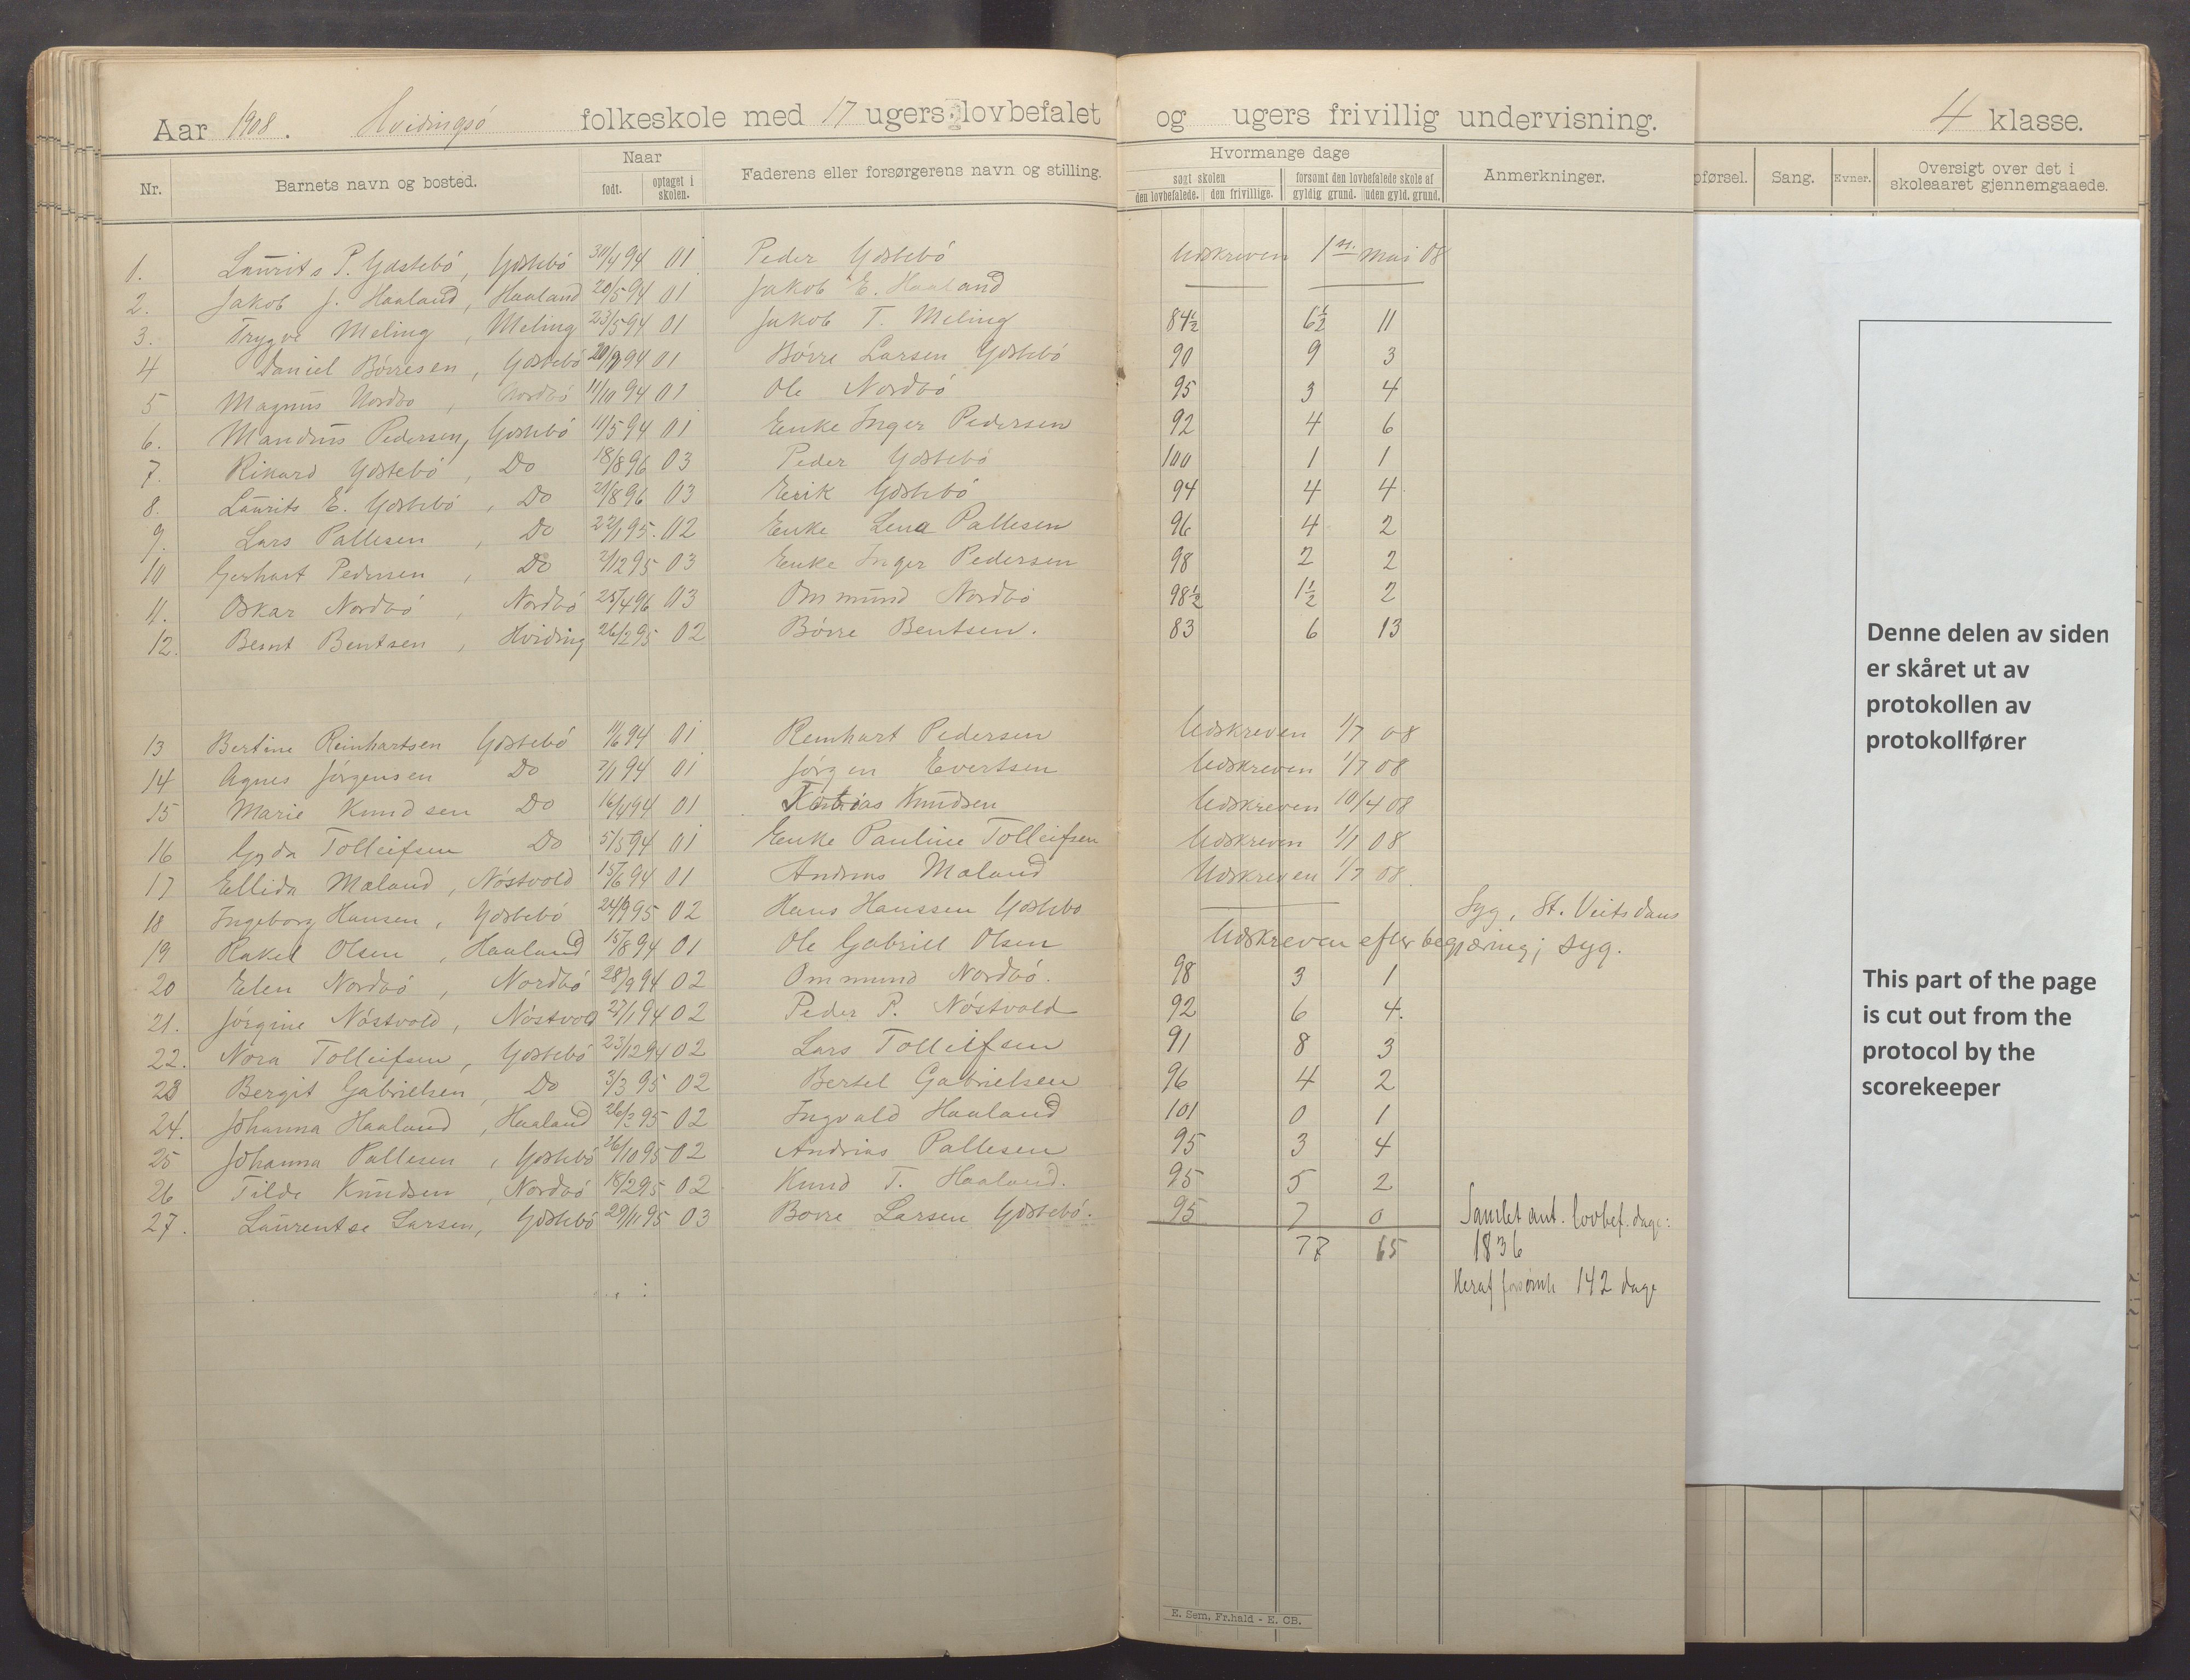 Aar 1908. Hvidingsö folkeskole med 17 ugers lovbefalet og ugers frivillig undervisning. 4 klasse.
Nr. Barnets navn og bosted. Naar Faderens eller forsørgerens navn og stilling. Hvormange dage Anmerkninger. pførsel. Sang. Evner. Oversigt over det i skoleaaret gjennemgaaede.
født. optaget i skolen. søgt skolen forsømt den lovbefalede skole af
den lovbefalede. den frivillige. gyldig grund. uden gyld. grund.
1. Laurits P. Ydstebö, Ydstebö 30/4 94 01 Peder Ydstebö Udskreven 1st mai 08
2. Jakob J. Haaland, Haaland 20/5 94 01 Jakob E. Haaland
3. Trygve Meling, Meling 23/5 94 01 Jakob T. Meling 84½ 6½ 11
4 Daniel Börresen, Ydstebö 94 01 Börre Larsen Ydstebö 90 9 3
5 Magnus Nordbö, Nordbö 11/10 94 01 Ole Nordbö 95 3 4
6. Mandius Pedersen, Ydstebö 11/5 94 01 Enke Inger Pedersen 92 4 6
7. Rikard Ydstebö, Do 18/8 96 03 Peder Ydstebö 100 1 1
8. Laurits E. Ydstebö, Do 21/8 96 03 Erik Ydstebö 94 4 4
9. Lars Pallesen, Do 22/1 95. 02 Enke Lena Pallesen 96 4 2
10 Gerhart Pedersen, Do 2/12 95 03 Enke Inger Pedersen 98 2 2
11. Oskar Nordbö, Nordbö 25/4 96 03 Ommund Nordbö 98½ 1½ 2
12. Bernt Bentsen, Hviding 26/2 95 02 Börre Bentsen. 83 6 13
13 Bertine Reinhartsen Ydstebö 11/6 94 01 Reinhart Pedersen Udskreven 1/7 08
14 Agnes Jörgensen Do 7/1 94 01 Jörgen Evertsen Udskreven 1/7 08
15 Marie Knudsen Do 16/4 94 01 Knudsen Udskreven 10/4 08
16 Gyda Tolleifsen Do 5/5 94 01 Enke Pauline Tolleifsen Udskreven 1/1 08
17 Ellida Maland, Nöstvold 15/6 94 01 Andreas Maland Udskreven 1/7 08.
18 Ingeborg Hansen, Ydstebö 24/9 95 02 Hans Hanssen Ydstebö Syg, St. Veitsdans
19 Rakel Olsen, Haaland 15/8 94 01 Ole Gabriel Olsen Udskreven efter begjæring; syg.
20 Elen Nordbö, Nordbö 28/9 94 02 Ommund Nordbö. 98 3 1
21. Jörgine Nöstvold, Nöstvold 27/1 94 02 Peder P. Nöstvold 92 6 4.
22. Nora Tolleifsen, Ydstebö 23/12 94 02 Lars Tolleifsen 91 8 3
23 Bergit Gabrielsen, Do 3/3 95 02 Bertel Gabrielsen 96 4 2
24. Johanna Haaland, Haaland 26/2 95 02 Ingvald Haaland 101 0 1
25 Johanna Pallesen, Ydstebö 26/10 95 02 Andreas Pallesen 95 3 4
26 Tilde Knudsen, Nordbö 18/2 95 02 Knud T. Haaland. 95 5 2
27. Laurentse Larsen, Ydstebö 29/11 95 03 Börre Larsen Ydstebö. 95 7 0 Samlet ant. lovbef. dage:
77 65 1836
Heraf forsömte 142 dage
E. Sem, Fr.hald - E. CB.
Denne delen av siden
er skåret ut av
protokollen av
protokollfører
This part of the page
is cut out from the
protocol by the
scorekeeper